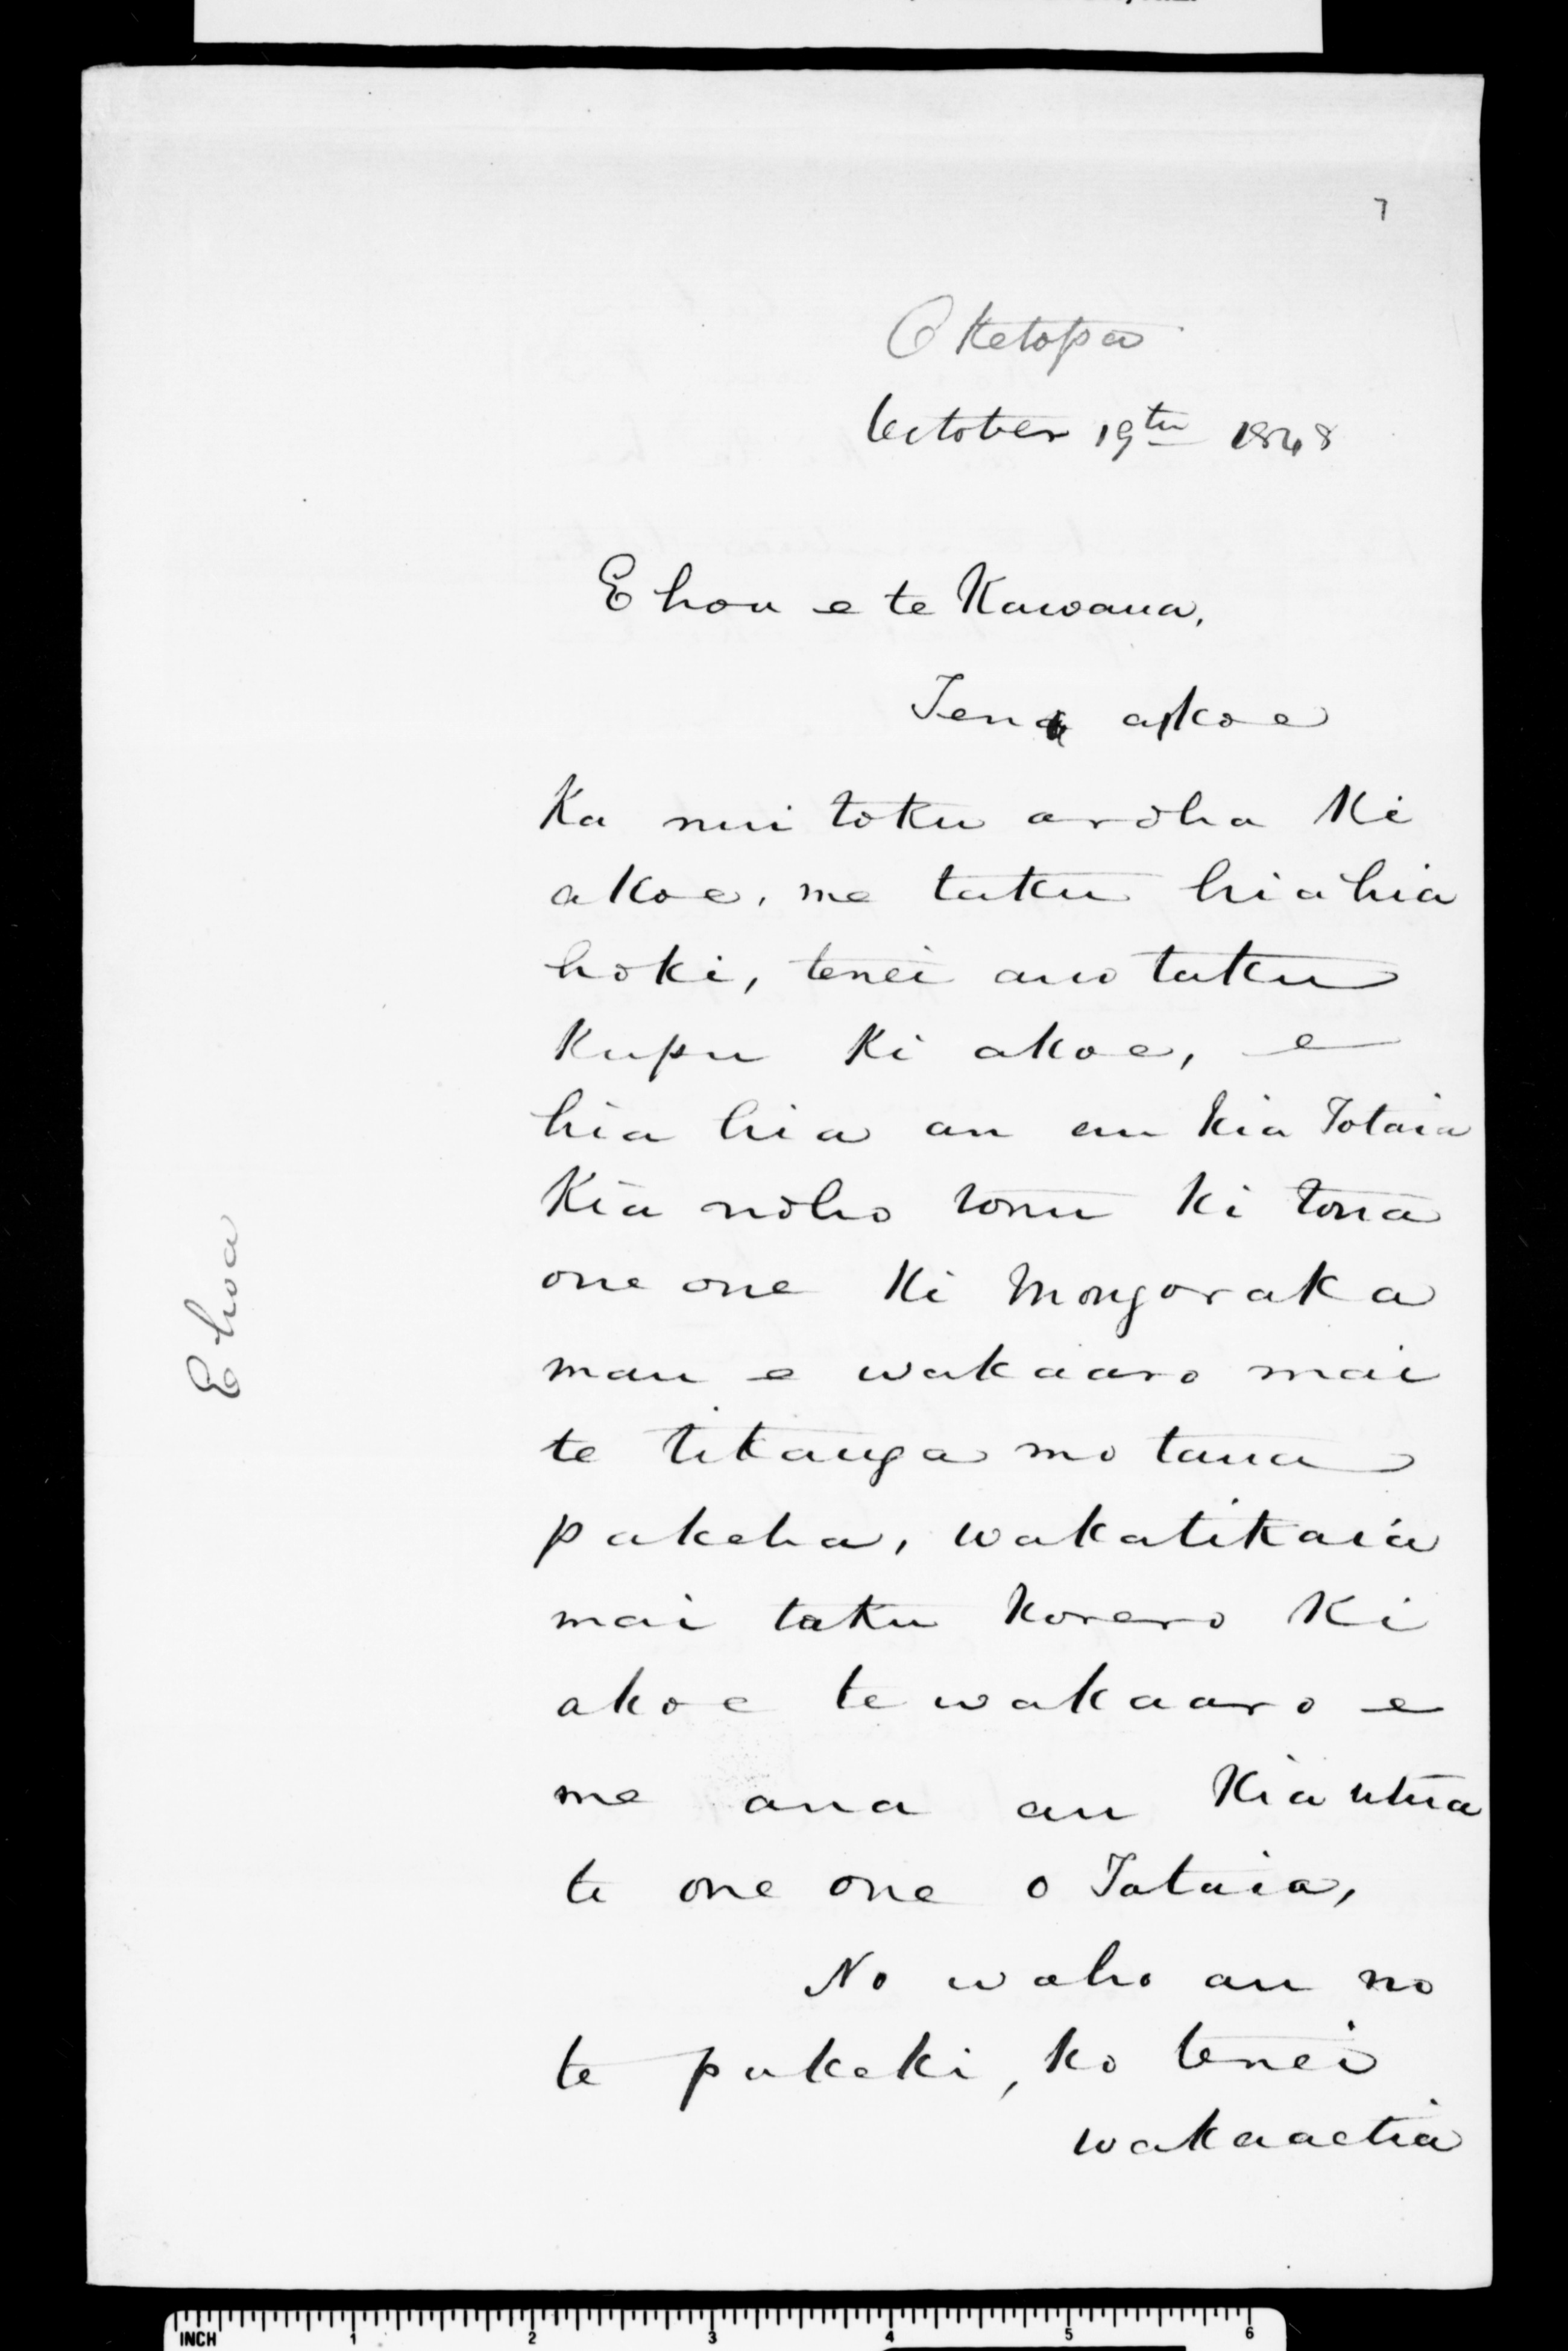 7
Oketopa
October 19th 1848
E hoa e te Kawana,
Tena akoe
Ka nui toku aroha Ki
akoe, me taku hiahia
hoki, tenei ano taku
Kupu Ki akoe, e
hia hia an au kia Totaia
Kia noho tonu ki tona
one one Ki Mongoraka
mau e wakaaro mai
te tikanga mo taua
pakeha, wakatikaia
mai taku korero Ki
akoe te wakaaro e
me ana au Kia utua
te one one o Totaia,
No waho au no
te pukaki, ko tenei
wakaaetia
E hoa
INCH 1 2 3 4 5 6